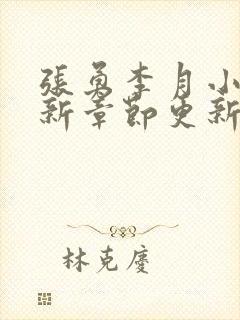 張勇李月小
新章節更新
林克慶